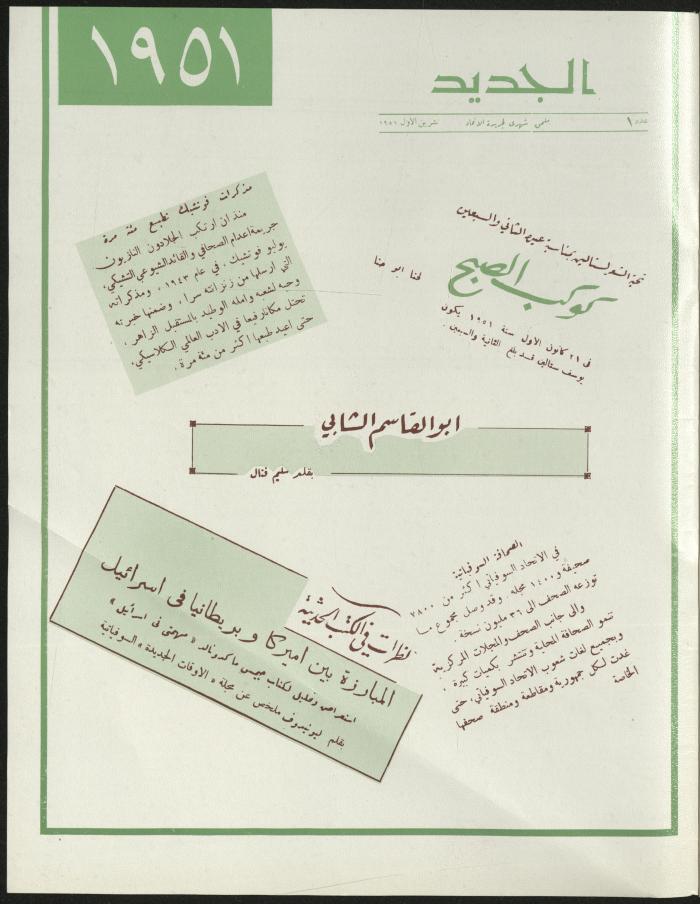 ١٩٥١
الجديد
عدد ١ ملحق شهري لجريدة الاتحاد تشرين الاول ١٩٥١
مذكرات فوتشيك تطبع مئة مرة
منذ ان ارتكب الجلادون النازيون
جريمة اعدام الصحافي والقائد الشيوعي التشيكي،
يوليو فوتشيك، في عام ١٩٤٣، ومذكراته
التي ارسلها من زنزانته سرا، وضمنها خبرته
وحبه لشعبه وامله الوطيد بالمستقبل الزاهر،
تحتل مكانا رفيعا في الادب العالمي الكلاسيكي.
حتى اعيد طبعها اكثر من مئة مرة.
تحية الشعر لستالين بمناسبة عيده الثاني والسبعين
كوكب الصبح
لحنا ابو حنا
في ٢١ كانون الاول سنة ١٩٥١ يكون
يوسف ستالين قد بلغ الثانية والسبعين.
ابو القاسم الشابي
بقلم سليم قنال
نظرات في الكتب الحديثة
المبارزة بين اميركا وبريطانيا في اسرائيل
استعراض وتعليق لكتاب جيمس ماكدونالد «مهمتي في اسرائيل»
بقلم ليونيدوف ملخص عن مجلة «الاوقات الجديدة» السوفياتية
الصحافة السوفياتية
في الاتحاد السوفياتي اكثر من ٢٨٠٠
صحيفة و١٤٠٠ مجلة. وقد وصل مجموع ما
توزعه الصحف الى ٣١ مليون نسخة.
والى جانب الصحف والمجلات المركزية
تنمو الصحافة المحلية وتنتشر بكميات كبيرة
وبجميع لغات شعوب الاتحاد السوفياتي، حتى
غدت لكل جمهورية ومقاطعة ومنطقة صحفها
الخاصة